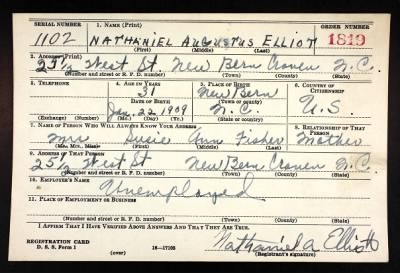 SERIAL NUMBER 1. NAME (Print) ORDER NUMBER
1102 NATHANIEL AUGUSTUS ELLIOT 1819
(First) (Middle) (Last)
2. ADDRESS (Print)
25½ West St. New Bern Craven N.C.
(Number and street or R. F. D. number) (Town) (County) (State)
3. TELEPHONE 4. AGE IN YEARS 5. PLACE OF BIRTH 6. COUNTRY OF CITIZENSHIP
31 New Bern
DATE OF BIRTH (Town or county)
Jan. 22 1909 N.C. U.S.
(Exchange) (Number) (Mo.) (Day) (Yr.) (State or country)
7. NAME OF PERSON WHO WILL ALWAYS KNOW YOUR ADDRESS 8. RELATIONSHIP OF THAT PERSON
Mrs. Susie Ann Fisher Mother
(Mr., Mrs., Miss) (First) (Middle) (Last)
9. ADDRESS OF THAT PERSON
25½ West St New Bern Craven N.C.
(Number and street or R. F. D. number) (Town) (County) (State)
10. EMPLOYER'S NAME
Unemployed
11. PLACE OF EMPLOYMENT OR BUSINESS
(Number and street or R. F. D. number) (Town) (County) (State)
I AFFIRM THAT I HAVE VERIFIED ABOVE ANSWERS AND THAT THEY ARE TRUE.
REGISTRATION CARD
D. S. S. Form 1 16—17105 Nathaniel A Elliott
(Registrant's signature)